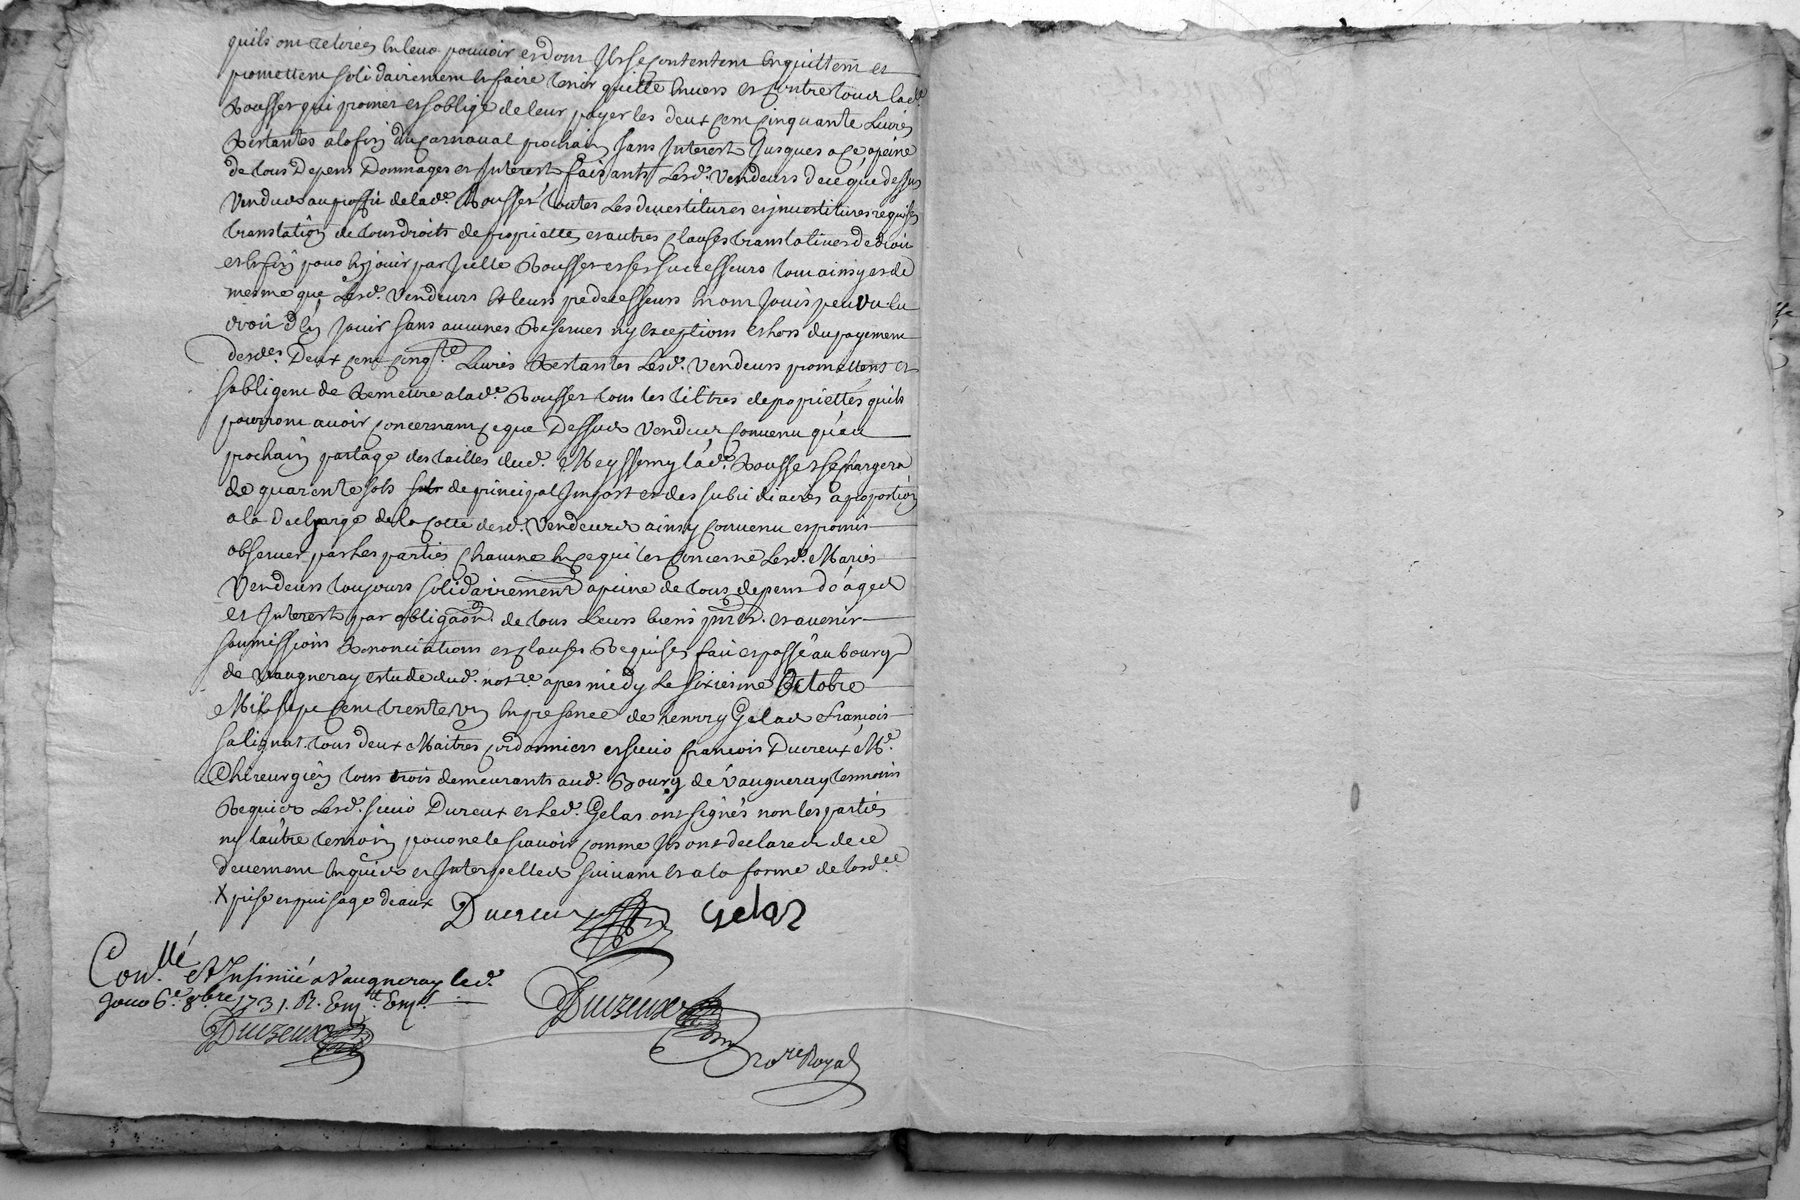 quils ont retirées en leur pouvoir et dont ils se contentent en quittent et
promettent solidairement en faire tenir quitte envers et contre tous lad.e
Rousset qui promet et soblige de leur payer les deux cent cinquante Livres
Restantes a la fin du Carnaval prochain sans Interest Jusques a ce a peine
de tous Depens Dommages et Interest faisants Lesd. Vendeurs de ce que dessus
Vendus au proffit de lad.e Rousset toutes Les devestitures et investitures requises
translation de tous droits de proprietté et autres clauses translatives de droit
et enfin pour en jouir par Jcelle Rousset et ses successeurs tout ainsy et de
mesme que Lesd. Vendeurs et leurs predecesseurs en ont Joui peu vu lu
droit den Jouir sans aucunes Reserves ny exceptions et hors du payement
desd.es Deux Cent Cinq.te Livres Restantes Lesd. Vendeurs promettent et
sobligent de Remettre a lad.e Rousset tous les tiltres de propriettés quils
pourront avoir concernant ce que Dessus Vendu Convenu qu'au
prochain partage des tailles dud. Meyssemy lad.e Rousset se chargera
de quarente sols de principal Impost et des subcidiaires a proportion
a la Decharge de la Cotte desd. Vendeurs ainsy convenu et promis
observer par les parties Chacune en ce qui les Concerne Lesd. Mariés
Vendeurs toujours solidairement a peine de tous depens do'ages
et Interest par obliga'on de tous Leurs biens p'nts et avenir
soumissions Renonciations et clauses Requises fait et passé au bourg
de Vaugneray estude dud. not.re apres midy Le sixiesme Octobre
Mil sept Cent trente un en presence de henrry Gelas François
salignat tous deux Maitres cordonniers et sieur françois Ducreux M.e
Chireurgien tous trois demeurants aud. Bourg de Vaugneray temoins
Requis Led. sieur Ducreux et Led. Gelas ont signés non les parties
ny l'autre temoin pour ne le scavoir comme Ils ont declarer de ce
deuement enquis et Interpelled suivant et a la forme de lord.ce
X prise et puisage deaux Ducreux Gelas
Con.llé et Insinué a Vaugneray led.
Jour 6.e 8bre 1731. R.
Duizeux
Duizeux
no.re Royal